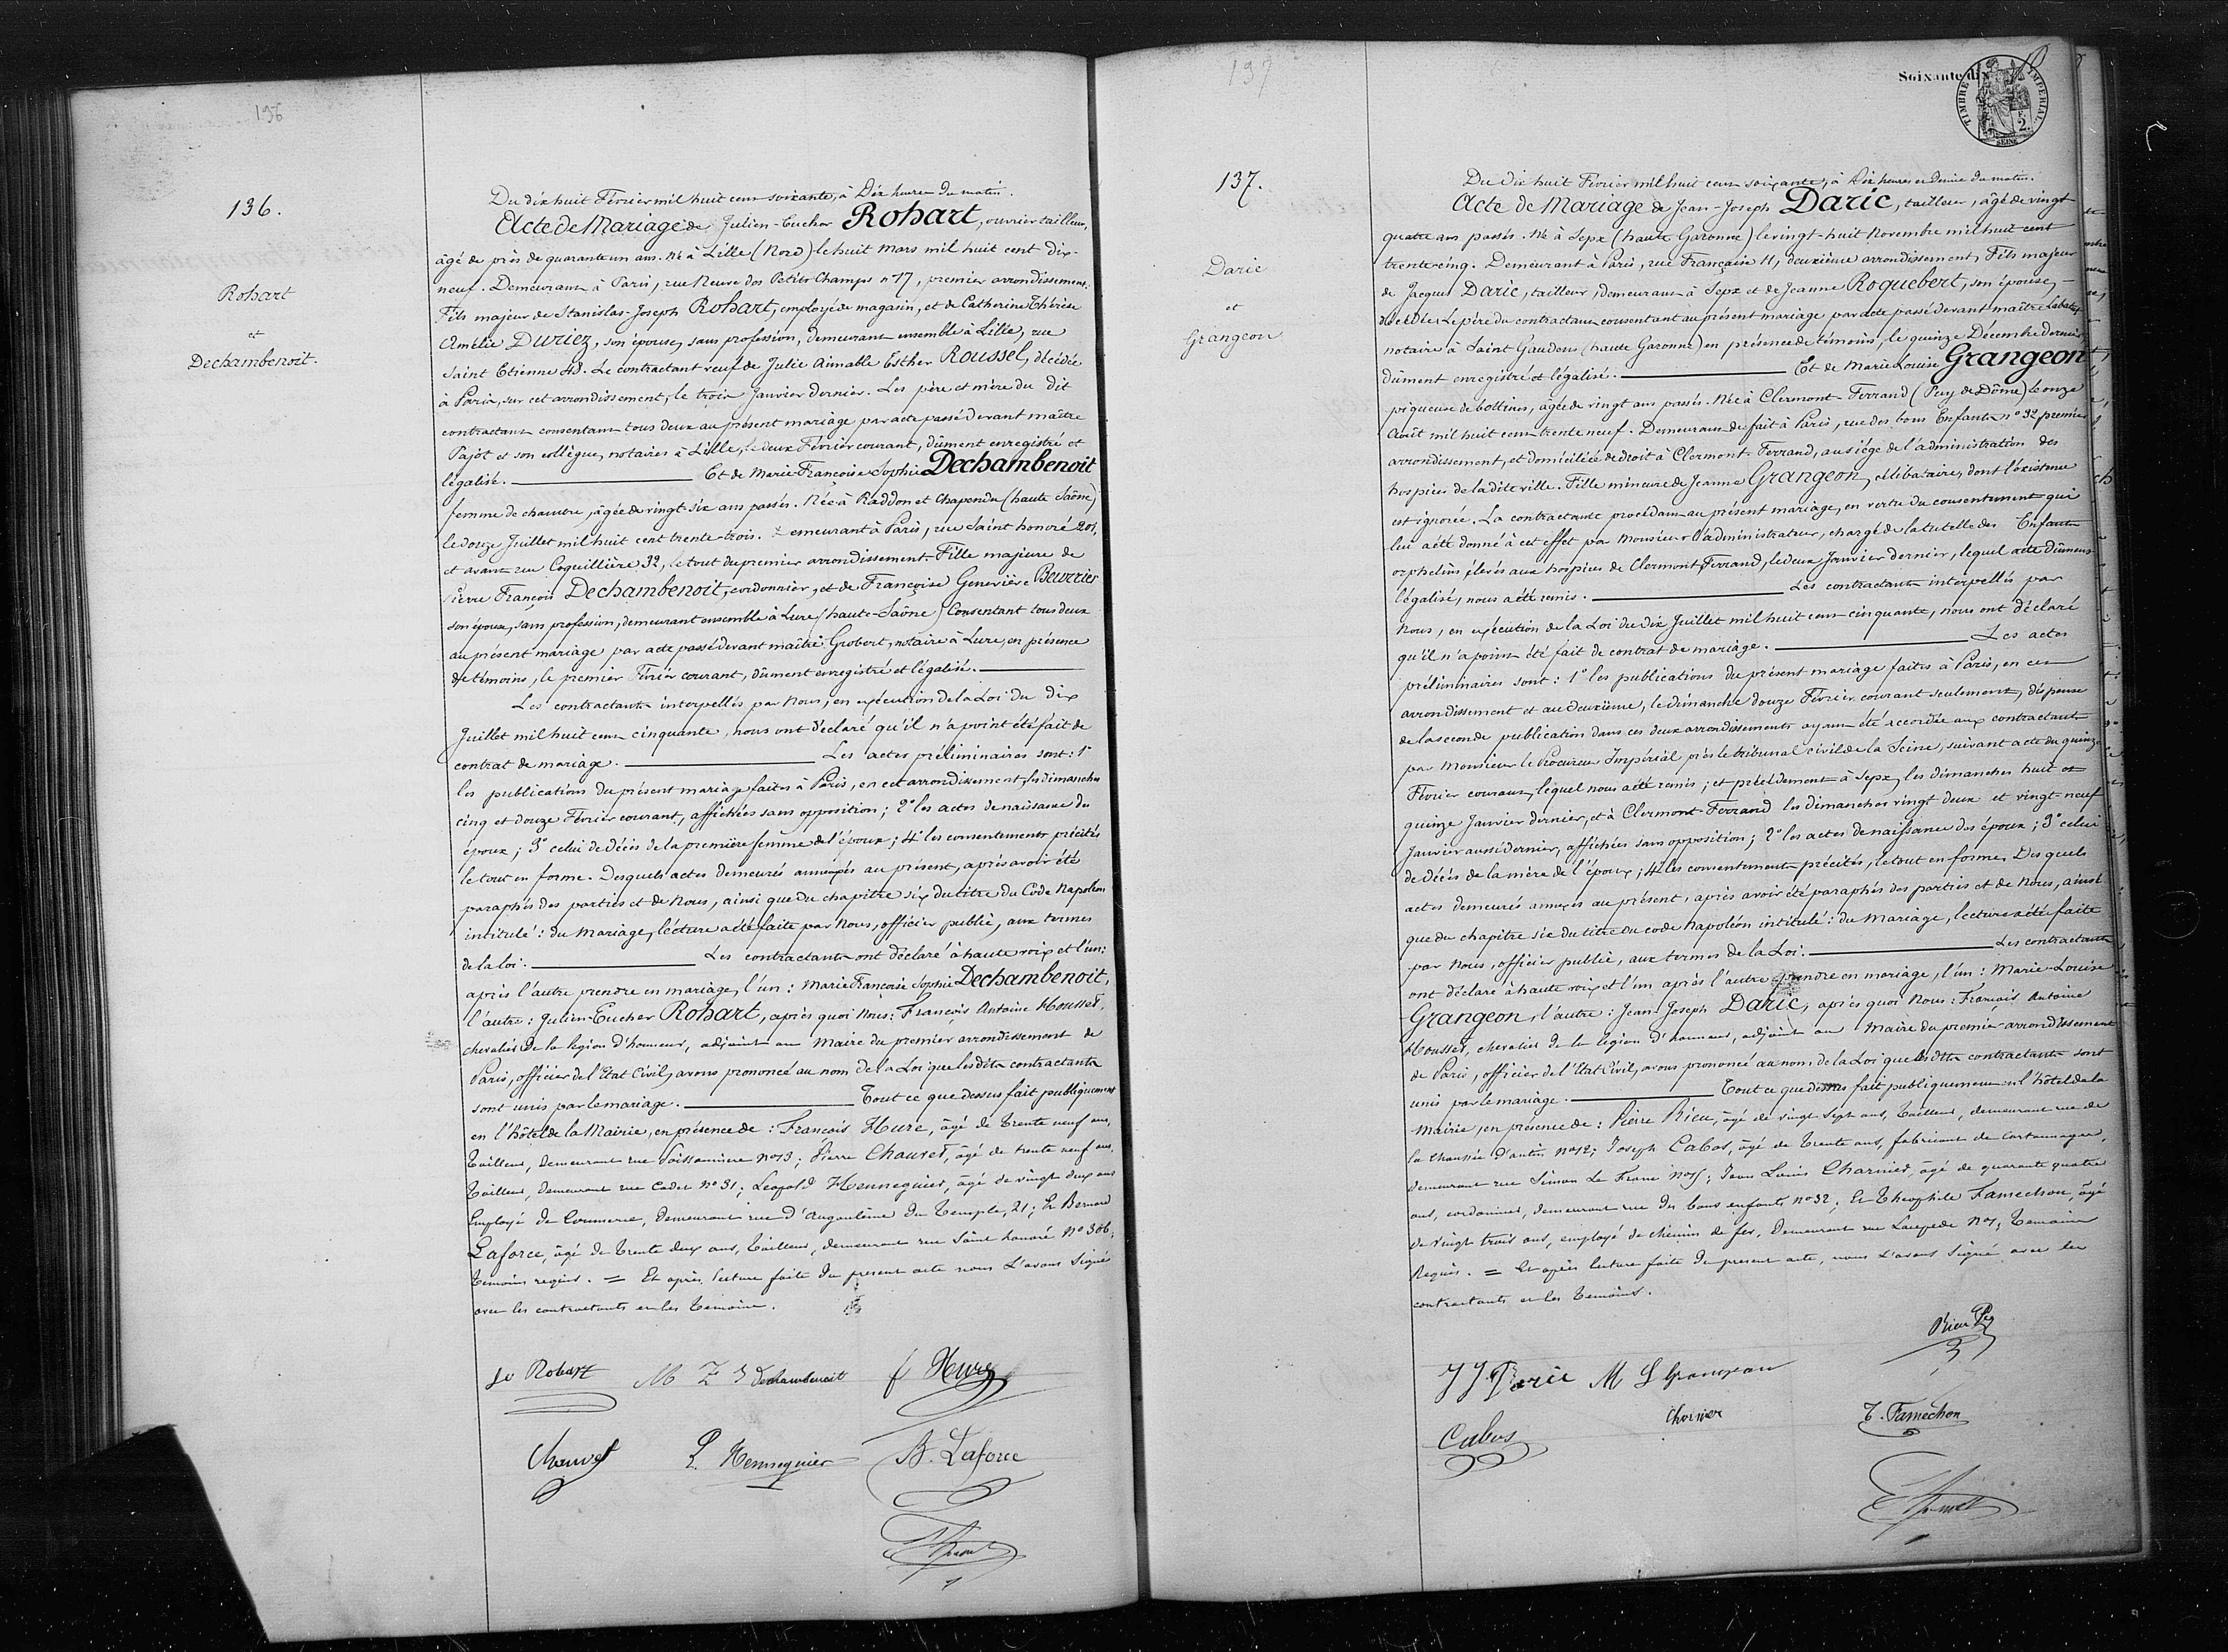 136
136.
Rohart
et
Dechambenoit.
Du dix huit Février mil huit cent soixante, à Dix heures du matin.
Acte de Mariage de Julien-Eucher Rohart, ouvrier tailleur,
âgé de près de quarante un ans. Né à Lille (Nord) le huit Mars mil huit cent dix-
neuf. Demeurant à Paris, rue Neuve des Petits Champs n° 17, premier arrondissement.
Fils majeur de Stanislas-Joseph Rohart, employé de magasin, et de Catherine Thérèse
Amélie Duriez, son épouse, sans profession, demeurant ensemble à Lille, rue
Saint Etienne 43. Le contractant veuf de Julie Aimable Esther Roussel, décédée
à Paris, sur cet arrondissement, le trois Janvier dernier. Les père et mère du dit
contractant consentant tous deux au présent mariage par acte passé devant maître
Pajot et son collègue, notaires à Lille, le deux Février courant, dûment enregistré et
légalisé. Et de Marie Françoise Sophie Dechambenoit
femme de chambre, âgée de vingt-six ans passés. Née à Raddon et Chapendu (haute Saône)
le douze Juillet mil huit cent trente-trois. Demeurant à Paris, rue Saint honoré 201,
et avant rue Coquillière 32, le tout du premier arrondissement. Fille majeure de
Pierre François Dechambenoit, cordonnier, et de Françoise Geneviève Beuvrier
son épouse, sans profession, demeurant ensemble à Lure (haute-Saône) Consentant tous deux
au présent mariage par acte passé devant maître Grobert, notaire à Lure, en présence
de témoins, le premier Février courant, dûment enregistré et légalisé.
Les contractants interpellés par Nous, en exécution de la Loi du dix
Juillet mil huit cent cinquante, nous ont déclaré qu'il n'a point été fait de
contrat de mariage. Les actes préliminaires sont: 1°
les publications du présent mariage faites à Paris, en cet arrondissement, les dimanches
cinq et douze Février courant, affichées sans opposition; 2° les actes de naissance des
époux; 3° celui de décès de la première femme de l'époux; 4° les consentements précités
le tout en forme. Desquels actes demeurés annexés au présent, après avoir été
paraphés des parties et de Nous, ainsi que du chapitre six du titre du Code Napoléon
intitulé: du Mariage, lecture a été faite par Nous, officier public, aux termes
de la loi. Les contractants ont déclaré à haute voix et l'un:
après l'autre prendre en mariage, l'un: Marie Françoise Sophie Dechambenoit,
l'autre: Julien-Eucher Rohart, après quoi Nous: François Antoine Housset,
chevalier de la légion d'honneur, adjoint au Maire du premier arrondissement de
Paris, officier de l'Etat Civil, avons prononcé au nom de la Loi que lesdits contractants
sont unis par le mariage. Tout ce que dessus fait publiquement
en l'hôtel de la Mairie, en présence de: François Hure, âgé de trente neuf ans,
tailleur, demeurant rue Poissonnière n° 13; Pierre Chauvet, âgé de trente neuf ans,
tailleur, demeurant rue Cadet n° 31; Leopold Hennequier, âgé de vingt deux ans
Employé de Commerce, demeurant rue d'Angoulème du Temple, 21; Et Bernard
Laforce, âgé de trente deux ans, tailleur, demeurant rue Saint honoré N° 366;
temoins requis. = Et après lecture faite du present acte nous L'avons signé
avec les contractants et les temoins.
Je Rohart M F S Dechambenoit f Hure
Chauvet L. Hennequier B. Laforce
137
137.
Daric
et
Grangeon
Soixante dix
TIMBRE IMPERIAL
2.
SEINE
Du dix huit Février mil huit cent soixante, à Dix heures et Demie du matin.
Acte de Mariage de Jean-Joseph Daric, tailleur, âgé de vingt
quatre ans passés. Né à Sepx (haute Garonne) le vingt-huit Novembre mil huit cent
trente-cinq. Demeurant à Paris, rue Française 11, deuxième arrondissement, Fils majeur
de Jacques Daric, tailleur, demeurant à Sepx et de Jeanne Roquebert, son épouse,
décédée. Le père du contractant consentant au présent mariage par acte passé devant maître
notaire à Saint Gaudens (haute Garonne) en présence de témoins, le quinze Décembre dernier
dûment enregistré et légalisé. Et de Marie Louise Grangeon
piqueuse de bottines, âgée de vingt ans passés. Née à Clermont-Ferrand (Puy de Dôme) le onze
Août mil huit cent trente neuf. Demeurant de fait à Paris, rue des bons Enfants n° 32 premier
arrondissement, et domiciliée de droit à Clermont-Ferrand, au siége de l'administration des
hospices de la dite ville. Fille mineure de Jeanne Grangeon, célibataire, dont l'existence
est ignorée. La contractante procédant au présent mariage, en vertu du consentement qui
lui a été donné à cet effet par Monsieur l'administrateur, chargé de la tutelle des Enfants
orphelins élevés aux hospices de Clermont Ferrand, le deux Janvier dernier, lequel acte dûment
légalisé, nous a été remis. Les contractants interpellés par
Nous, en exécution de la Loi du dix Juillet mil huit cent cinquante, nous ont déclaré
qu'il n'a point été fait de contrat de mariage. Les actes
préliminaires sont: 1° les publications du présent mariage faites à Paris, en cet
arrondissement et au deuxième, le dimanche douze Février courant seulement, dispense
de la seconde publication dans ces deux arrondissements ayant été accordée aux contractants
par Monsieur le Procureur Impérial près le tribunal civil de la Seine, suivant acte du quinze
Février courant, lequel nous a été remis; et précédemment à Sepx, les dimanches huit et
quinze Janvier dernier, et à Clermont-Ferrand les dimanches vingt deux et vingt-neuf
Janvier aussi dernier, affichées sans opposition; 2° les actes de naissance des époux; 3° celui
de décès de la mère de l'époux; 4° les consentements précités, le tout en forme. Desquels
actes demeurés annexés au présent, après avoir été paraphés des parties et de Nous, ainsi
que du chapitre six du titre du code Napoléon intitulé: du Mariage, lecture a été faite
par Nous, officier public, aux termes de la Loi. Les contractants
ont déclaré à haute voix et l'un après l'autre prendre en mariage, l'un: Marie-Louise
Grangeon, l'autre: Jean-Joseph Daric, après quoi Nous: François Antoine
Housset, chevalier de la légion d'honneur, adjoint au Maire du premier arrondissement
de Paris, officier de l'Etat Civil, avons prononcé au nom de la Loi que lesdits contractants sont
unis par le mariage. Tout ce que dessus fait publiquement en l'hôtel de la
Mairie, en présence de: Pierre Rieu, âgé de vingt sept ans, tailleur, demeurant rue de
la Chaussée d'antin n° 12; Joseph Cabos, âgé de trente ans, fabricant de cartonnages,
demeurant rue Simon Le Franc ; Jean Louis Charnier, âgé de quarante quatre
ans, cordonnier, demeurant rue des bons enfants n° 32; Et Théophile Famechon, âgé
de vingt trois ans, employé de chemin de fer, demeurant rue Lacepede , temoins
Requis. = Et après lecture faite du present acte, nous L'avons signé avec les
contractants et les temoins.
J J Daric M L Grangeon Rieu
Cabos Charnier T. Famechon